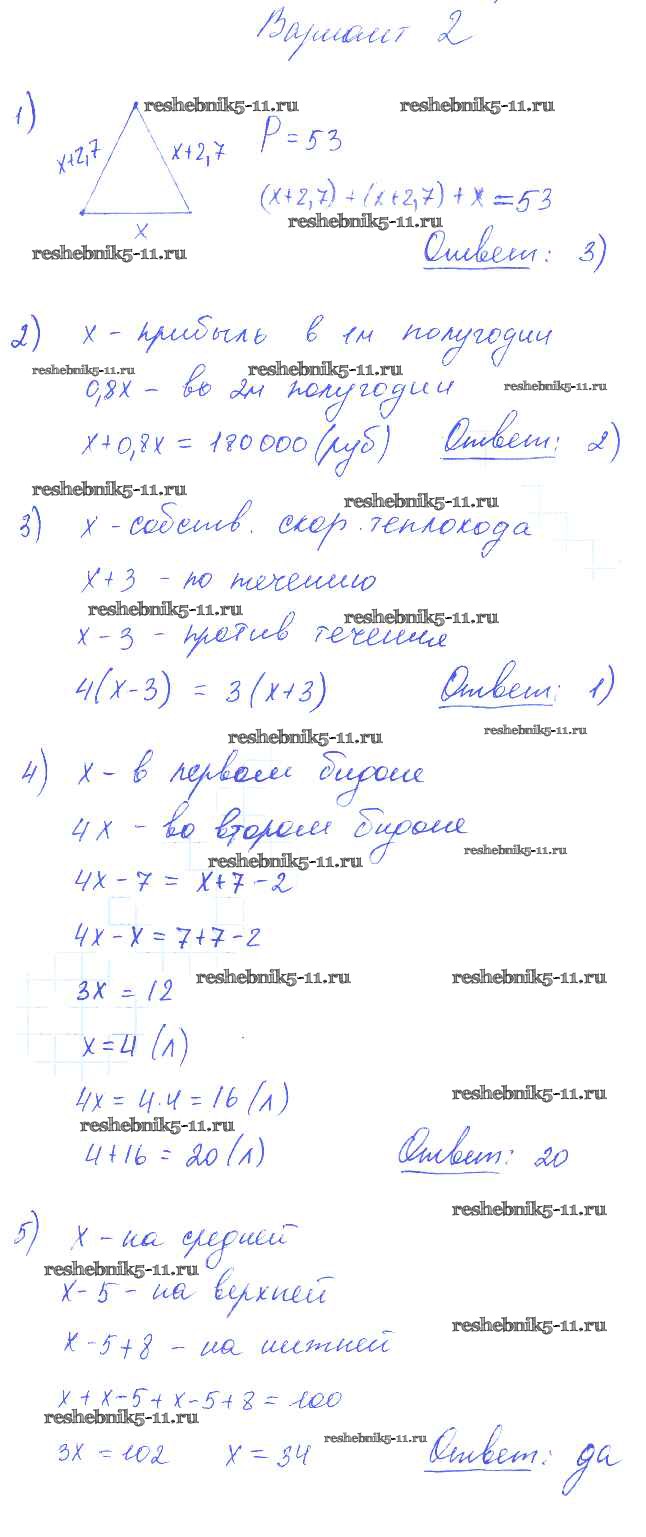 Вариант 2
1)
reshebnik5-11.ru reshebnik5-11.ru
x+2,7 x+2,7 P = 53
(x+2,7) + (x+2,7) + x = 53
reshebnik5-11.ru
x
reshebnik5-11.ru Ответ: 3)
2) x - прибыль в 1м полугодии
reshebnik5-11.ru reshebnik5-11.ru
0,8x - во 2м полугодии reshebnik5-11.ru
x+0,8x = 180000 (руб) Ответ: 2)
reshebnik5-11.ru reshebnik5-11.ru
3) x - собств. скор. теплохода
x+3 - по течению
reshebnik5-11.ru reshebnik5-11.ru
x-3 - против течения
4(x-3) = 3(x+3) Ответ: 1)
reshebnik5-11.ru reshebnik5-11.ru
4) x - в первом бидоне
4x - во втором бидоне
reshebnik5-11.ru reshebnik5-11.ru
4x-7 = x+7-2
4x-x = 7+7-2
reshebnik5-11.ru reshebnik5-11.ru
3x = 12
x=4 (л)
4x = 4·4 = 16 (л) reshebnik5-11.ru
reshebnik5-11.ru
4+16 = 20 (л) Ответ: 20
reshebnik5-11.ru
5) x - на средней
reshebnik5-11.ru
x-5 - на верхней
reshebnik5-11.ru
x-5+8 - на нижней
x+x-5+x-5+8 = 100
reshebnik5-11.ru reshebnik5-11.ru
3x = 102 x = 34 Ответ: да